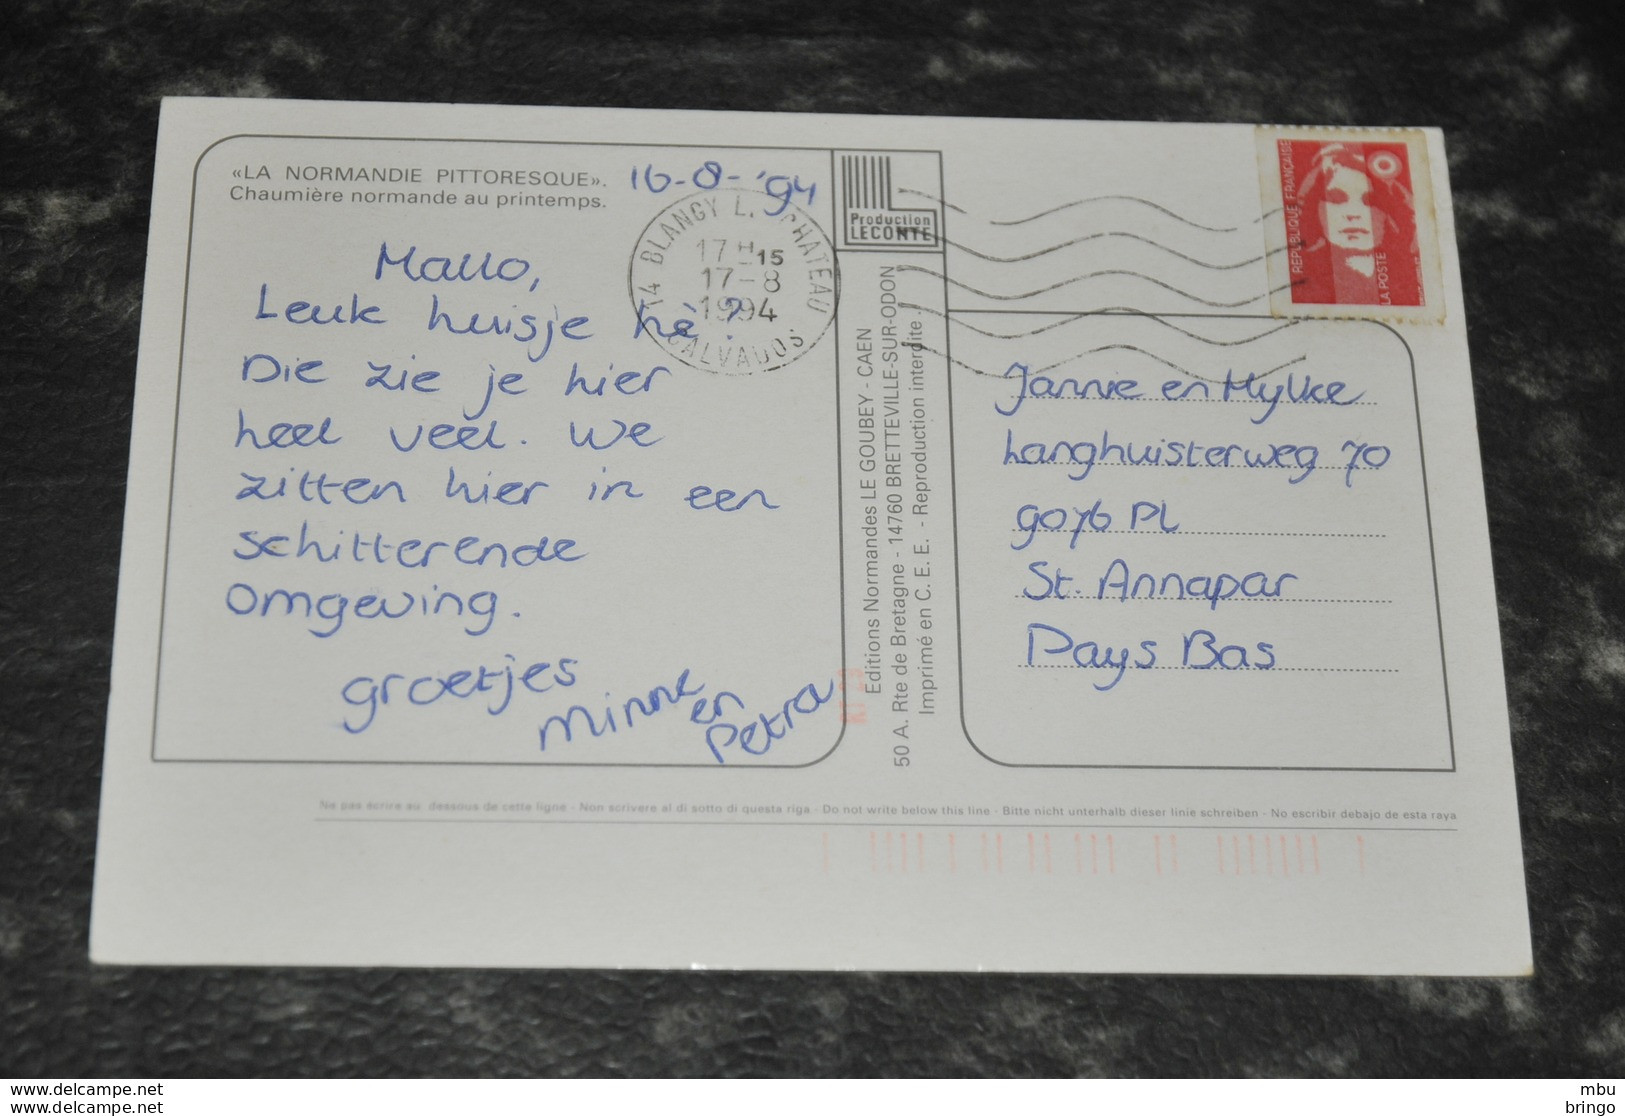 «LA NORMANDIE PITTORESQUE».
Chaumière normande au printemps.
16-8-'94
Hallo,
Leuk huisje hè?
Die zie je hier
heel veel. We
zitten hier in een
schitterende
omgeving.
groetjes
Minne
en
Petra
14 BLANGY L. CHATEAU
17 H 15
17-8
1994
CALVADOS
Production
LECONTE
Editions Normandes LE GOUBEY - CAEN
50 A. Rte de Bretagne - 14760 BRETTEVILLE-SUR-ODON
Imprimé en C. E. E. - Reproduction interdite.
REPUBLIQUE FRANÇAISE
LA POSTE
Jannie en Hylke
Langhuisterweg 70
9076 PL
St. Annapar
Pays Bas
Ne pas écrire au dessous de cette ligne - Non scrivere al di sotto di questa riga - Do not write below this line - Bitte nicht unterhalb dieser linie schreiben - No escribir debajo de esta raya
delcampe.net
delcampe.net
mbu
bringo